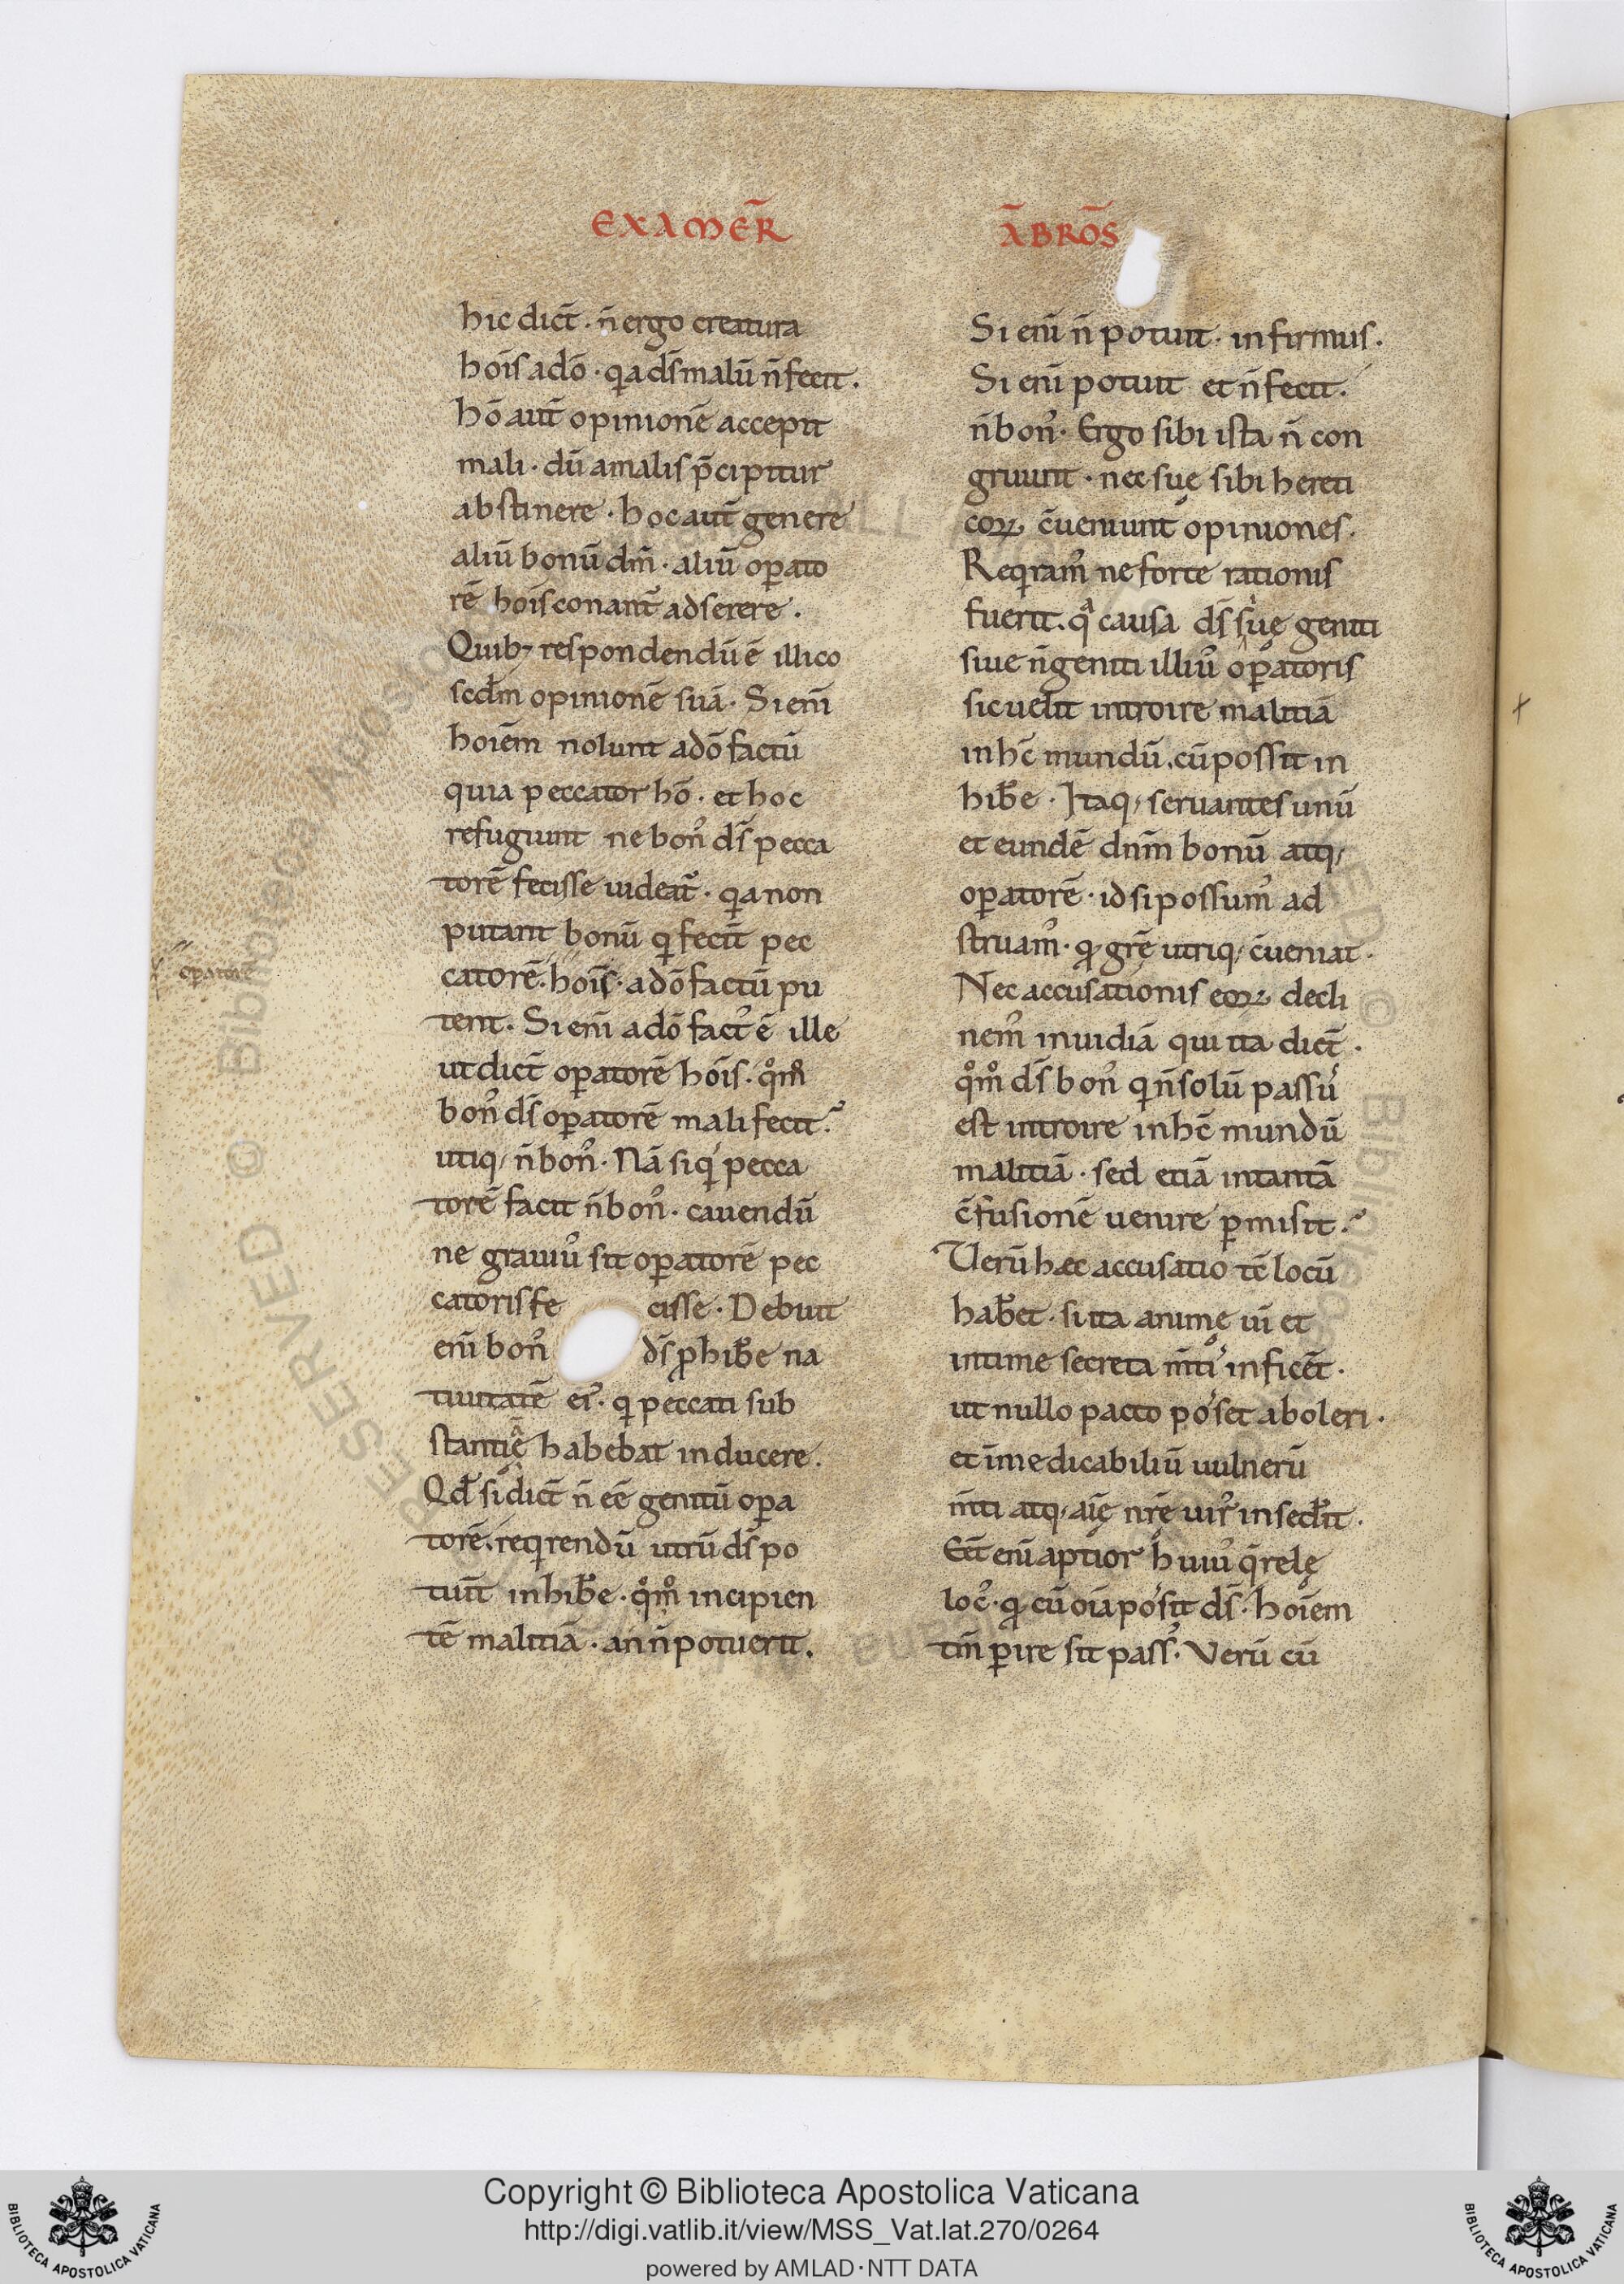 EXAMER̄
ĀBROS̄
hic dict̄ · n̄ ergo creatura
hoīs adō · qa ds̄ malū n̄ fecit .
hō aut̄ opinionē accepit
mali · dū a malis p̄cipitur
abstinere · hoc aut̄ genere
aliū bonū dm̄ · aliū oꝑato
rē hoīs conant̄ adserere .
Quibꝫ respondendū ē illico
scdm̄ opinionē suā · Si eni̅
hoīem nolunt adō factū
quia peccator hō · et hoc
refugiunt ne bonꝰ ds̄ pecca
torē fecisse uideat̄ · qa non
putant bonū q fecit̄ pec
catorē . hoīs · adō factū pu
tent . Si eni̅ adō factꝰ ē ille
ut dict̄ oꝑatorē hoīs · qͦm̊
bonꝰ ds̄ oꝑatorē mali fecit ?
utiqꝫ n̄ bonꝰ · Nā si qͥ pecca
torē facit n̄ bonꝰ · cauendū
ne grauiꝰ sit oꝑatorē pec
catoris fe cisse · Debuit
eni̅ bonꝰ ds̄ ꝓhib̄e na
tiuitatē eiꝰ · q peccati sub
stantiē habebat inducere .
Qd̄ si dict̄ n̄ eē genitū oꝑa
torē . reqrendū utrū ds̄ po
tuit̄ inhib̄e · qͦm̊ incipien
tē malitiā · an n̄ potuerit .
oꝑatorē
Si eni̅ n̄ potuit · infirmus .
Si eni̅ potuit et n̄ fecit .
n̄ bonꝰ · Ergo sibi ista n̄ con
gruunt · nec suę sibi hereti
coꝝ c̄ueniunt opiniones .
Reqramꝰ ne forte rationis
fuerit . qᵃ causa ds̄ siue geniti
siue n̄ geniti illiꝰ oꝑatoris
sic uelit introire malitiā
in hc̄ mundū . cū possit in
hib̄e · Itaqꝫ seruantes unū
et eundē dnm̄ bonū atqꝫ
oꝑatorē · id si possumꝰ ad
struamꝰ · qͦ grē utriqꝫ c̄ueniat .
Nec accusationis eoꝝ decli
nemꝰ inuidiā qui ita dict̄ .
qͦm̊ ds̄ bonꝰ q n̄ solū passꝰ
est introire in hc̄ mundū
malitiā · sed etiā in tantā
c̄fusionē uenire ꝑmisit ?
Uerū hæc accusatio tc̄ locū
hab̄et · si ita animę ui̅ et
intime secreta m̄tiˢ inficēt .
ut nullo pacto poˢset aboleri .
et īmedicabiliū uulnerū
m̄ti atqꝫ aīę nrē uirꝰ insed̄it .
Eēt eni̅ aptior huiꝰ q̄relę
locꝰ · qͦ cū oīa poˢsit ds̄ · hoīem
tm̄ ꝑire sit passꝰ · Verū cū
Copyright © Biblioteca Apostolica Vaticana
http://digi.vatlib.it/view/MSS_Vat.lat.270/0264
powered by AMLAD · NTT DATA
BIBLIOTECA APOSTOLICA VATICANA
BIBLIOTECA APOSTOLICA VATICANA